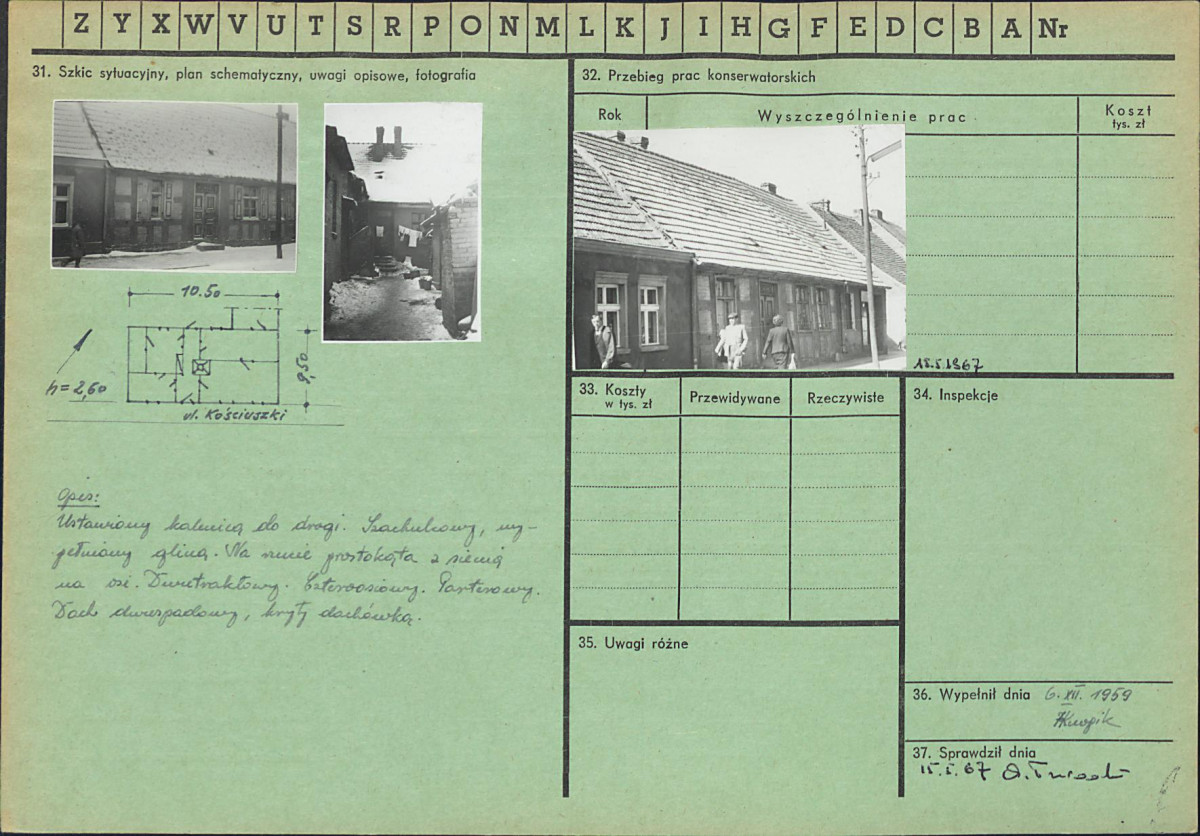 Z Y X W V U T S R P O N M L K J I H G F E D C B A Nr
31. Szkic sytuacyjny, plan schematyczny, uwagi opisowe, fotografia
10.50
9,50
h=2,60
ul. Kościuszki
Opis:
Ustawiony kalenicą do drogi. Szachulcowy, wy-
pełniony gliną. Na rzucie prostokąta z sienią
na osi. Dwutraktowy. Czteroosiowy. Parterowy.
Dach dwuspadowy, kryty dachówką.
32. Przebieg prac konserwatorskich
Rok
Wyszczególnienie prac
Koszt
tys. zł
15.5.1967
33. Koszty
w tys. zł
Przewidywane
Rzeczywiste
34. Inspekcje
35. Uwagi różne
36. Wypełnił dnia 6.XII.1959
37. Sprawdził dnia
15.5.67